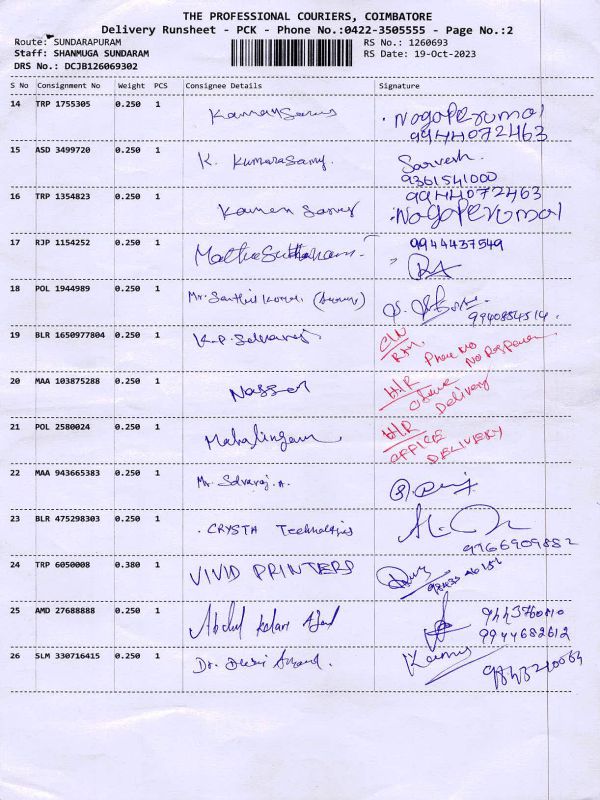 THE PROFESSIONAL COURIERS, COIMBATORE
Delivery Runsheet - PCK - Phone No.:0422-3505555 - Page No.:2
Route: SUNDARAPURAM RS No.: 1260693
Staff: SHANMUGA SUNDARAM RS Date: 19-Oct-2023
DRS No.: DCJB126069302
S No Consignment No Weight PCS Consignee Details Signature
14 TRP 1755305 0.250 1 NagaPerumal
9944072463
15 ASD 3499720 0.250 1 K. Kumarasamy Sarvesh.
9361541000
16 TRP 1354823 0.250 1 9944072463
NagaPerumal
17 RJP 1154252 0.250 1 9944437549
18 POL 1944989 0.250 1 Mr. Senthil Kumar
9940854514
19 BLR 1650977804 0.250 1 K.P. Selvaraj Phone No
No Response
20 MAA 103875288 0.250 1 Nasser H/R
Office
Delivery
21 POL 2580024 0.250 1 Mahalingam H/R
OFFICE
DELIVERY
22 MAA 943665383 0.250 1 Mr. Selvaraj. A.
23 BLR 475298303 0.250 1 CRYSTA Technologies
9766909882
24 TRP 6050008 0.380 1 VIVID PRINTERS
25 AMD 27688888 0.250 1 Abdul Kalam Azad
9944682612
26 SLM 330716415 0.250 1 Dr. Anand.